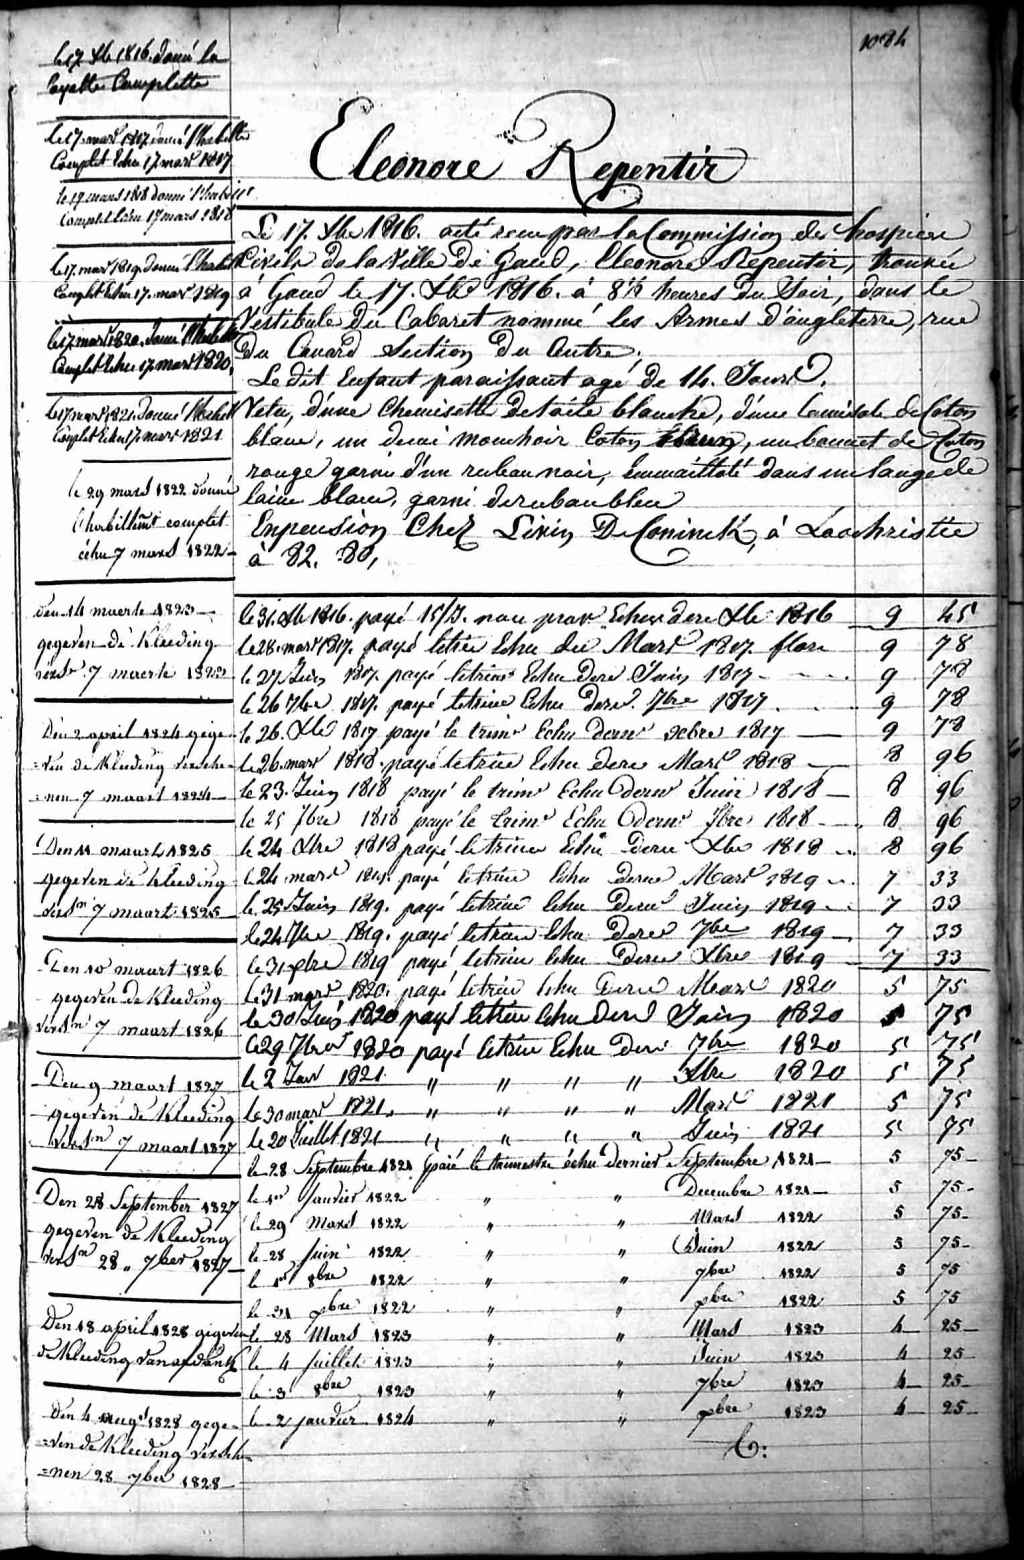 1084
Eleonore Repentir
le 17 Xbe 1816. donné la
layette Complette
le 17 mars 1817 donné l'habille
Complet Echu 17 mars 1817
le 17 mars 1818 donné l'habillt
Complet Echu 17 mars 1818
le 17. mars 1819. donné l'habill
Complet Echu 17. mars 1819
le 17. mars 1820. donné l'habille
Complet Echu 17 mars 1820.
le 17 mars 1821. donné l'habill
Complet Echu 17 mars 1821
le 29 mars 1822 donné
l'habillemt complet
échu 7 mars 1822
den 14 maerte 1823
gegeven de Kleeding
versn 7 maerte 1823
Den 2 april 1824 gege-
-ven de Kleeding versche-
-nen 7 maart 1824
Den 11 maart 1825
gegeven de Kleeding
versn 7 maart 1825
Den 10 maart 1826
gegeven de Kleeding
versn 7 maart 1826
Den 9 maart 1827
gegeven de Kleeding
versn 7 maart 1827
Den 28 September 1827
gegeven de Kleeding
versn 28 " 7ber 1827
Den 18 april 1828 gegeven
de Kleeding van
Den 4 augt 1828 gege-
-ven de Kleeding versche-
-nen 28 7ber 1828
Le 17. Xbe 1816. a été recu par la Commission des hospices
Civils de la Ville de Gand, Eleonore Repentir, trouvée
à Gand le 17. Xbe 1816. à 8½ heures du Soir, dans le
Vestibule du Cabaret nommé les Armes d'angleterre, rue
du Canard Section du Centre.
Le dit Enfant paraissant agé de 14. Jours.
Vetu, d'une Chemisette de toile blanche, d'une Camisole de Coton
blanc, un demi mouchoir Coton brun, un bonnet de Coton
rouge garni d'un ruban noir, Emmailloté dans un lange de
laine blanc, garni de ruban bleu
En pension Chez Livin De Coninck, à Loochristie
à 82. 80,
le 31. Xbe 1816. payé 15/J. Echu dere Xbe 1816 9 45
le 28. mars 1817. payé letrim Echu de Mars 1817 9 78
le 27 Juin 1817. payé letrimr Echu dere Juin 1817 9 78
le 26 7be 1817. payé letrime Echu dere. 7bre 1817 9 78
le 26. Xbe 1817 payé le trimr Echu dernr Xbre 1817 9 78
le 26. mars 1818. payé letrime Echu dere Mars 1818 8 96
le 23. Juin 1818 payé le trimr Echu dernr Juin 1818 8 96
le 25 7bre 1818 payé le trimr Echu dernr 7bre 1818 8 96
le 24 Xbre 1818 payé letrime Echu Derne Xbe 1818 8 96
le 24 mars 1819. payé letrime Echu Derne Mars 1819 7 33
le 25 Juin 1819. payé letrime Echu Dernr Juin 1819 7 33
le 24 7bre 1819. payé letrime Echu Dere 7be 1819 7 33
le 31 xbre 1819 payé letrime Echu Derne Xbre 1819 7 33
le 31 mars 1820. payé letrime Echu Derne Mars 1820 5 75
le 30 Juin 1820 payé letrime Echu Dere Juin 1820 5 75
le 29 7bre 1820 payé letrime Echu Dere 7bre 1820 5 75
le 2 Janr 1821 " " " " Xbre 1820 5 75
le 30 mars 1821. " " " " Mars 1821 5 75
le 20 Juillet 1821 " " " " Juin 1821 5 75
le 28 Septembre 1821 payé le trimestre échu dernier Septembre 1821 5 75
le 1er Janvier 1822 " " Decembre 1821 5 75
le 29 Mars 1822 " " Mars 1822 5 75
le 28 Juin 1822 " " Juin 1822 5 75
le 1er 8bre 1822 " " 7bre 1822 5 75
le 31 xbre 1822 " " xbre 1822 5 75
le 28 Mars 1823 " " Mars 1823 4 25
le 4 Juillet 1823 " " Juin 1823 4 25
le 3 8bre 1823 " " 7bre 1823 4 25
le 2 janvier 1824 " " xbre 1823 4 25